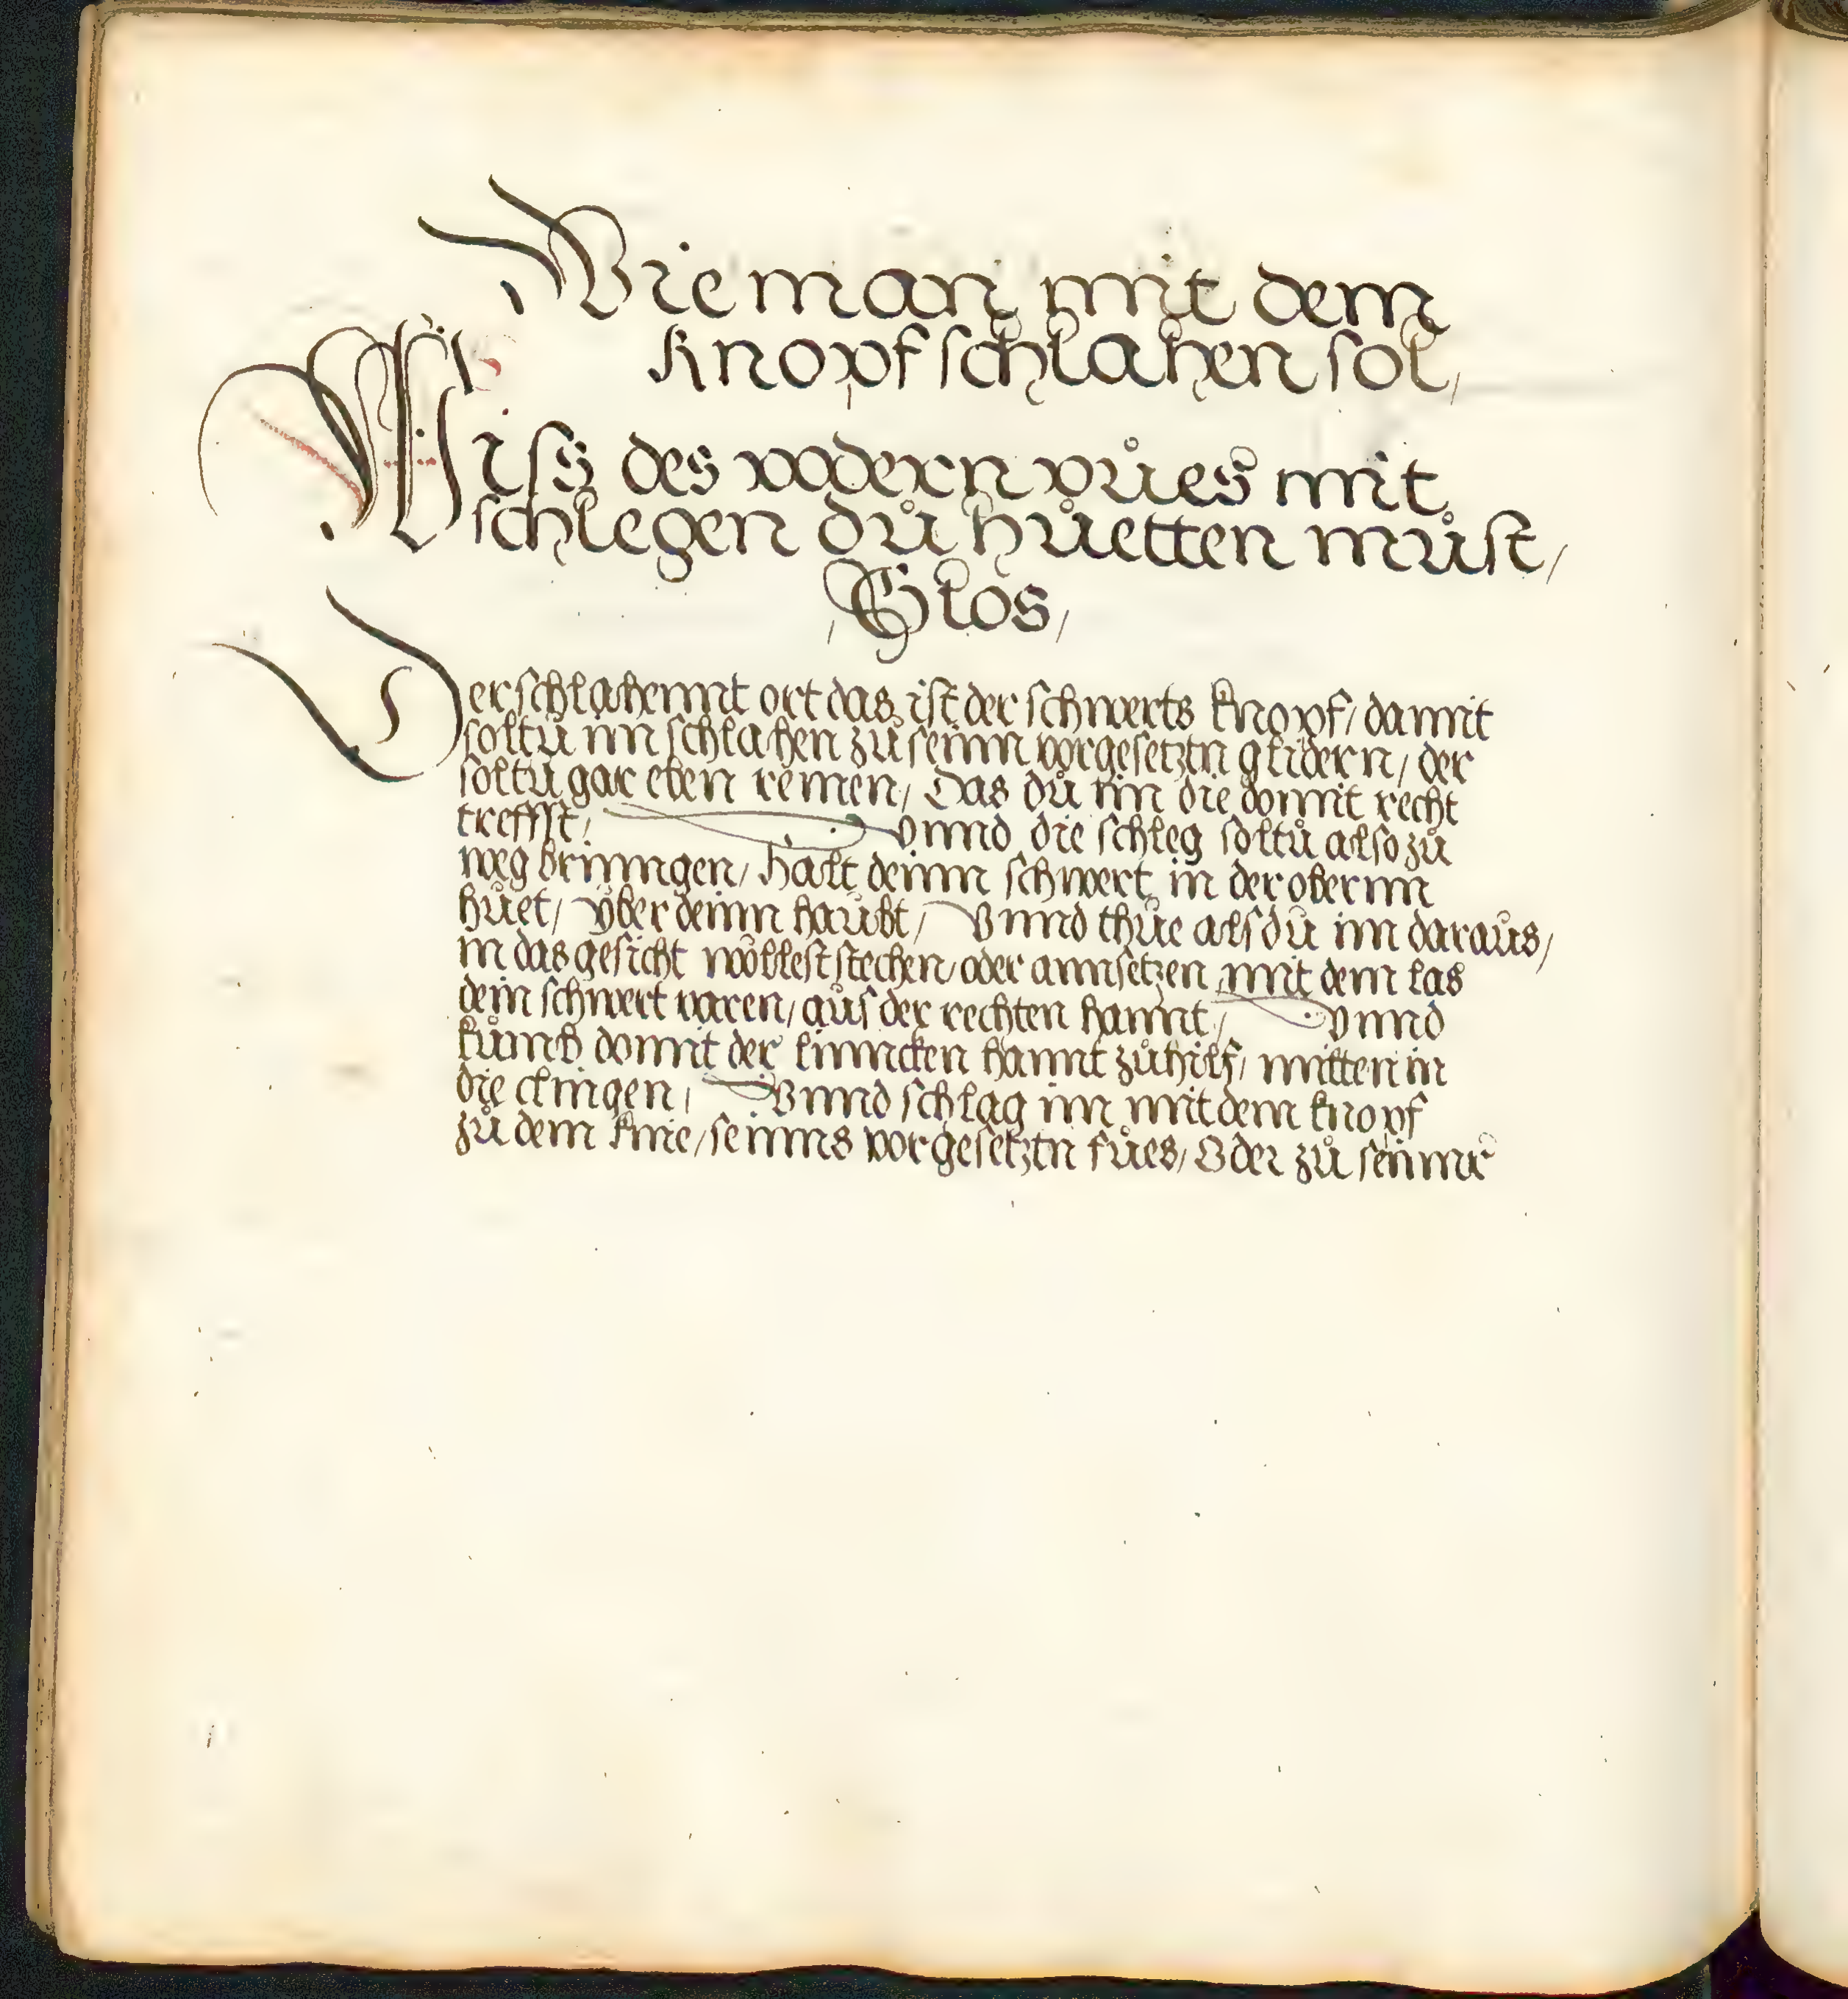 Wie man mit dem
knopf schlahen sol,
Wiss des vodern vůes mit
schlegen dů hůetten můst,
/Glos,
Der schlahennt ort das ist der schwerts knopf, damit
soltu im schlahen zů seinn vorgesetztn glidern, der
soltů gar eben remen, Das dů im die domit recht
treffst, Vnnd die schleg soltů also zů
weg brinngen, Halt deinn schwert in der obernn
hůet, vber deinn haůbt, Vnnd thůe als dů im daraůs,
in das gesicht wöllest stechen, oder annsetzen, mit dem las
dein schwert varen, aůs der rechten hannt, Vnnd
kůmb domit der linncken hannt zůhilf, mitten in
die clingen, Vnnd schlag im mit dem knopf
zů dem knie, seinns vorgesetztn fůes, Oder zů seinnr